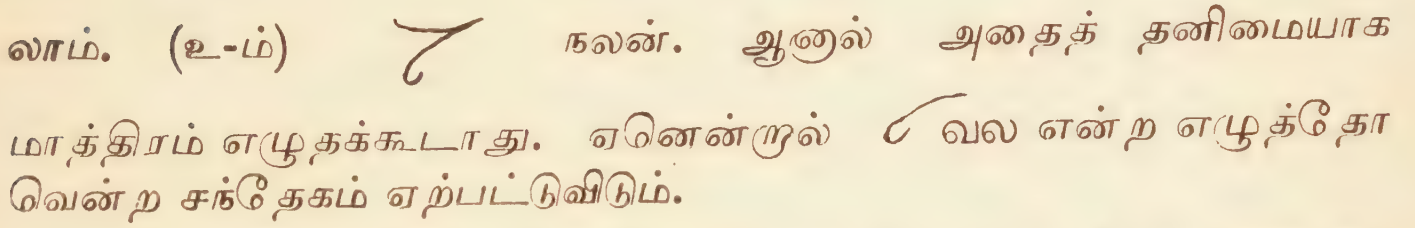 லாம். (உ-ம்) நலன். ஆனால் அதைத் தனிமையாக
மாத்திரம் எழுதக்கூடாது. ஏனென்றால் வல என்ற எழுத்தோ
வென்ற சந்தேகம் ஏற்பட்டுவிடும்.